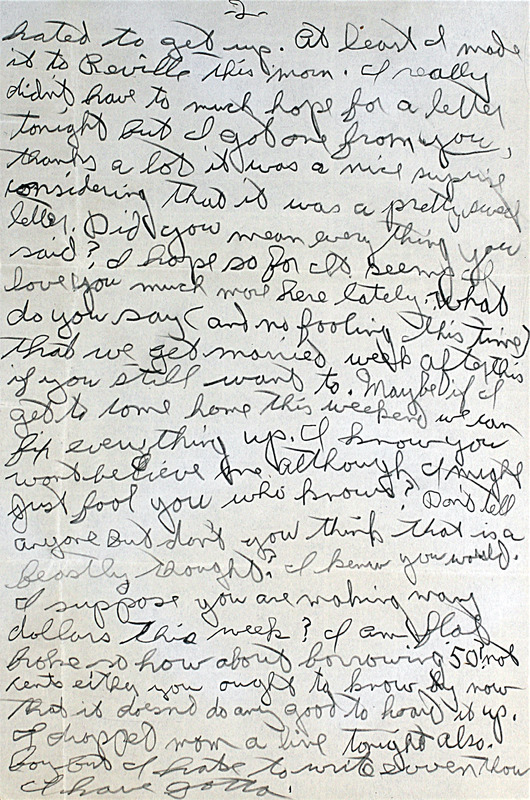 2
hated to get up. At least I made
it to Reville this morn. I really
didn't have to much hope for a letter
tonight but I got one from you,
thanks a lot it was a nice suprise
considering that it was a pretty sweet
letter. Did you mean every thing you
said? I hope so for it seems I
love you much more here lately. What
do you say (and no fooling this time)
that we get married week after this
if you still want to. Maybe if I
get to come home this weekend we can
fix everything up. I know you
won't believe me although I might
just fool you who knows? Don't tell
anyone but don't you think that is a
beastly thought? I knew you would.
I suppose you are making many
dollars this week? I am flat
broke so how about borrowing 50 not
cents either you ought to know by now
that it doesnt do any good to hoard it up.
I dropped mom a line tonight also.
Boy but I hate to write even thou
I have gotta.